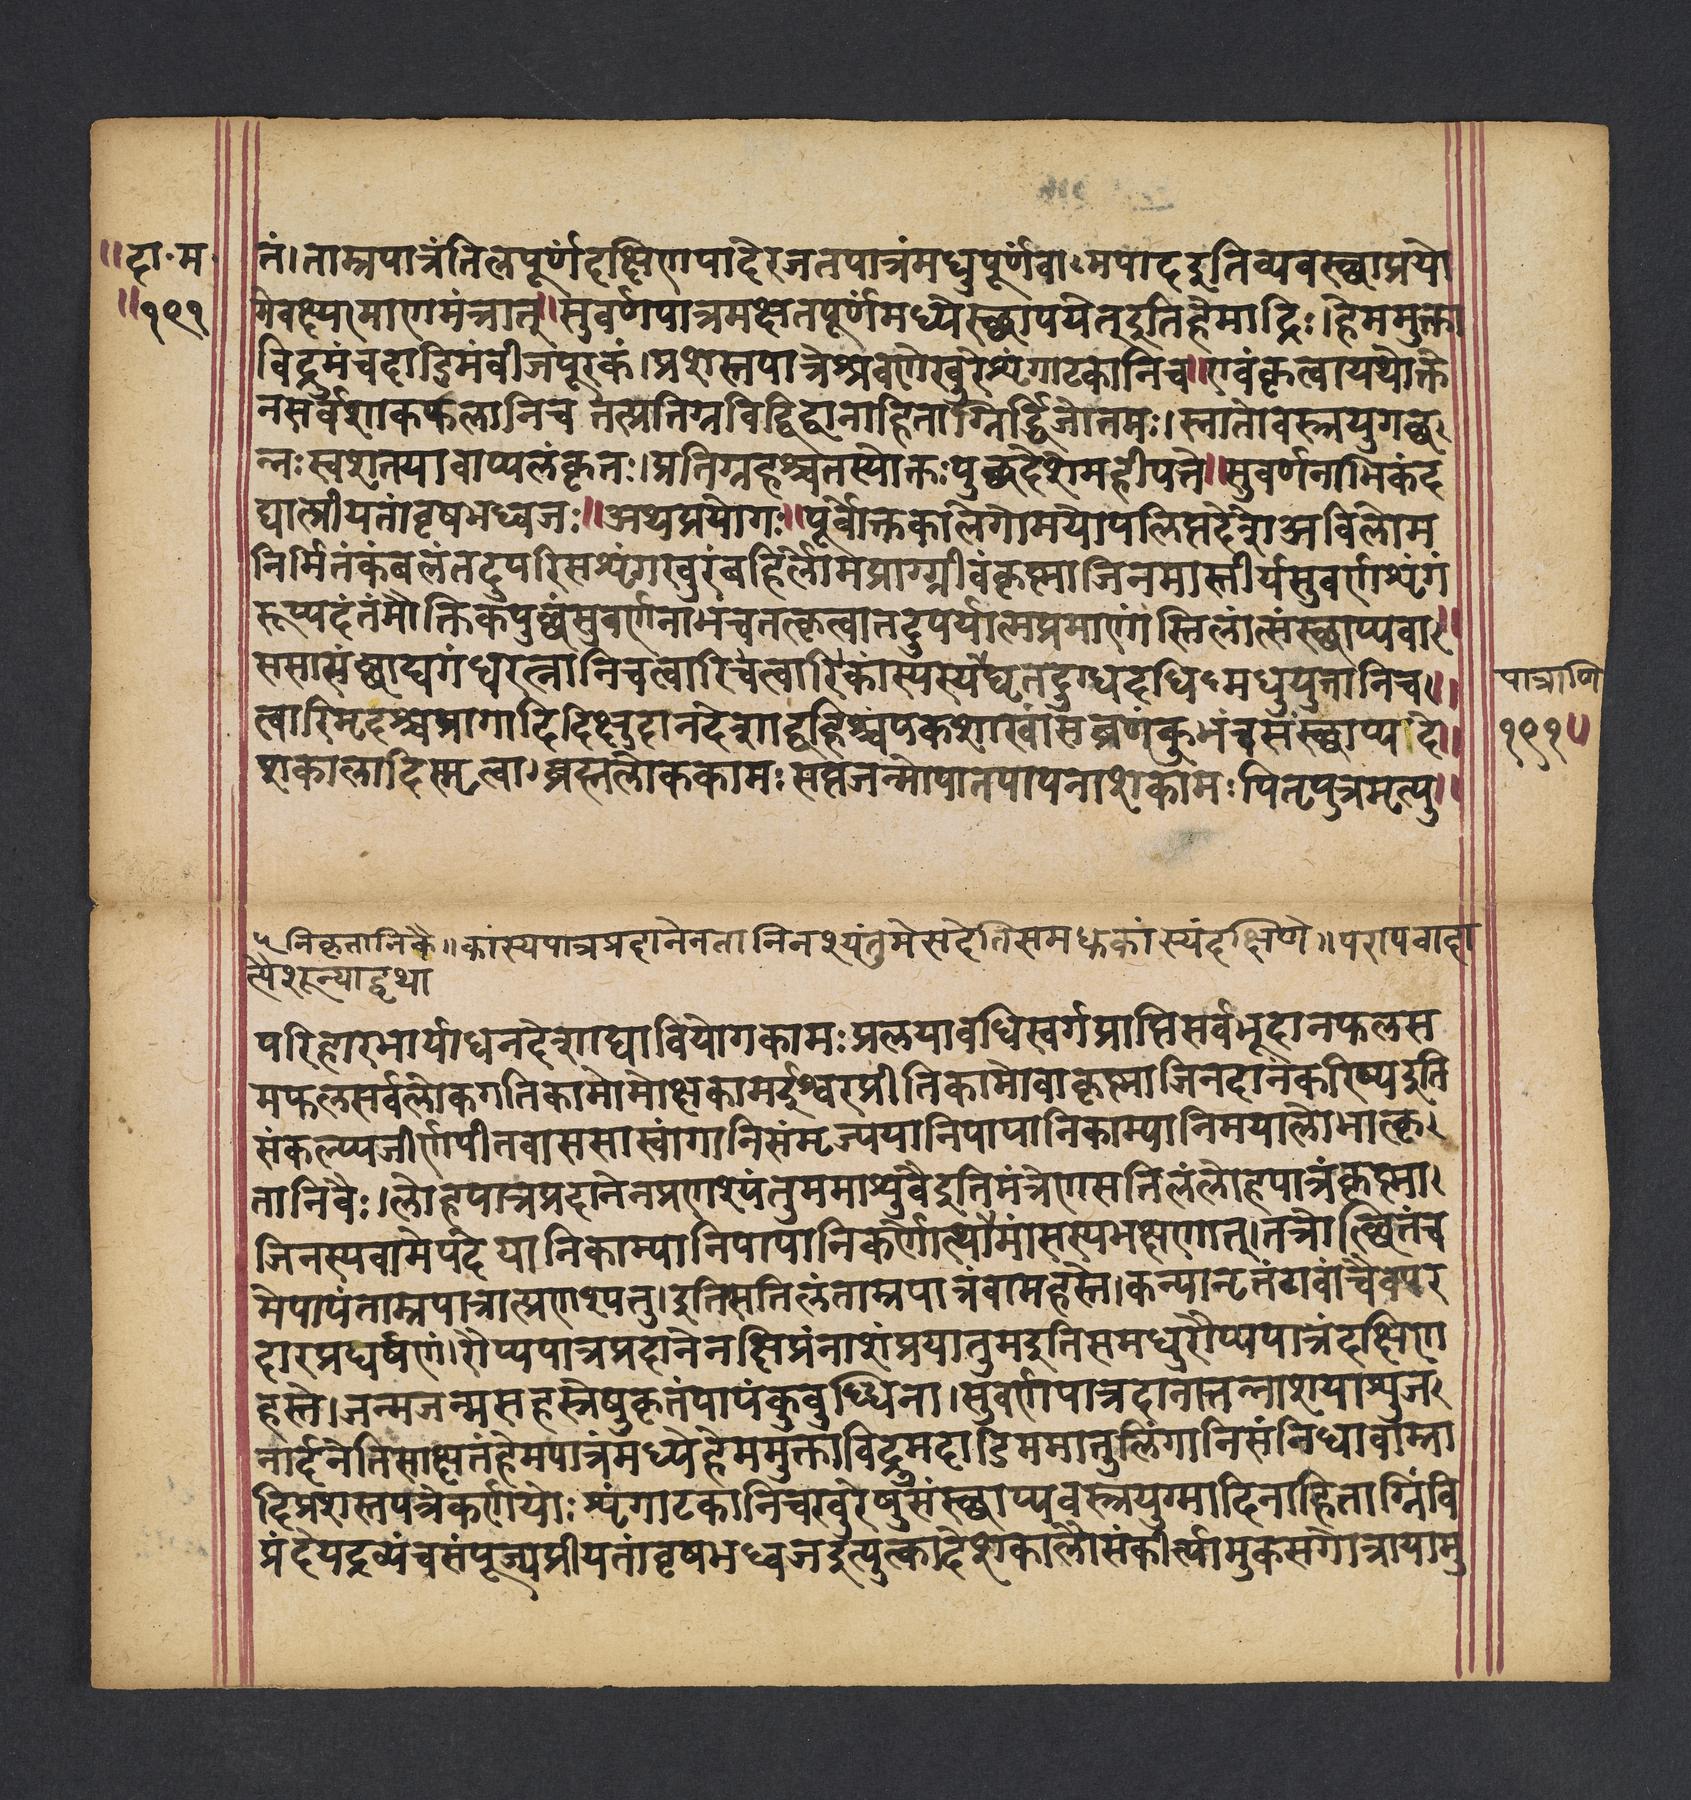 ॥दा·म·
॥१९१
नं।ताम्रपात्रंतिलपूर्णंदक्षिणपादेरजतपात्रंमधुपूर्णंवामपादइतिव्यवस्छाप्रयो
गेवक्ष्यमाणमंत्रात्॥सुवर्णपात्रमक्षतपूर्णंमध्येस्छापयेत्इतिहेमाद्रिः।हेममुक्ता
विद्रुमंचदाडिमंबीजपूरकं।प्रशस्तपात्रेश्रवणेखुरेशृंगाटकानिच॥एवंकृत्वायथोक्ते
नसर्वशाकफलानिच तत्प्रतिग्रहविद्विद्वानाहिताग्निर्द्विजोत्तमः।स्नातोवस्त्रयुगछ
न्नःस्वशक्तयावाप्यलंकृतः।प्रतिग्रहश्चतस्योक्तःपुछदेशेमहीपते॥सुवर्णनाभिकंद
द्यात्प्रीयतांवृषभध्वजः॥अथप्रयोगः॥पूर्वोक्तकालेगोमयोपलिप्तदेशेअविलोम
निर्मितंकंबलंतदुपरिसशृंगखुरंबहिर्लोमप्राग्ग्रीवंकृष्माजिनमास्तीर्यसुवर्णशृंगं
रूप्यदंतंमौक्तिकपुछंसुवर्णनाभंचतत्कृत्वातदुपर्यात्मप्रमाणंस्तिलांत्संस्छाप्यवा॥
ससासंछाद्यगंधरत्नानिचत्वारिचत्वारिकांस्यस्यघृतदुग्धदधिमधुयुतानिच॥
त्वारिमृदश्चप्रागादिदिक्षुदानदेशाद्बहिश्चंपकशाखांसव्रणंकुभंचसंस्छाप्य दे॥
शकालादिस्मृत्वा।ब्रह्मलोककामःसप्तजन्मोपात्तपापनाशकामःपितृपुत्रमृत्यु॥
पात्राणि
१९१॥
५ निकृतानिवै॥कांस्यपात्रप्रदानेनतानिनश्यंतुमेसदेतिसमधुकांस्यंदक्षिणे॥परापवादा
त्पैशून्याद्वृथा
परिहारभार्याधनदेशाद्यावियोगकामःप्रलयावधिस्वर्गप्राप्तिसर्वभूदानफलस
मफलसर्वलोकगतिकामोमोक्षकामईश्वरप्रीतिकामोवाकृष्माजिनदानंकरिष्यइति
संकल्प्यजीर्णपीतवाससास्वांगानिसंमृज्ययानिपापानिकाम्यानिमयालोभात्कृ
तानिवैः।लोहपात्रप्रदानेनप्रणश्यंतुममाशुवैइतिमंत्रेणसतिलंलोहपात्रंकृष्मा
जिनस्यवामेपदे यानिकाम्यानिपापानिकर्णोत्थामांसस्यभक्षणात्।तत्रोत्छितंच
मेपापंताम्रपात्रात्प्रणश्यतु।इतिसतिलंताम्रपात्रंवामहस्ते।कन्यानृतंगवांचैवपर
दारप्रघर्षणं।रौप्यपात्रप्रदानेनक्षिप्रंनाशंप्रयातुमइतिसमधुरौप्यपात्रंदक्षिण
हस्ते।जन्मजन्मसहस्रेषुकृतंपापंकुबुध्धिना।सुवर्णपात्रदानात्तन्नाशयाशुज
नार्दनेतिसाक्षतंहेमपात्रंमध्येहेममुक्ताविद्रुमदाडिममातुलिंगानिसंनिधावाम्रा
दिप्रशस्तपत्रेकर्णयोःशृंगाटकानिचखुरेषुसंस्छाप्यवस्त्रयुग्मादिनाहिताग्निंवि
प्रंदेयद्रव्यंचसंपूज्यप्रीयतांवृषभध्वजइत्युत्क्वादेशकालौसंकीर्त्यामुकसगोत्रायामु